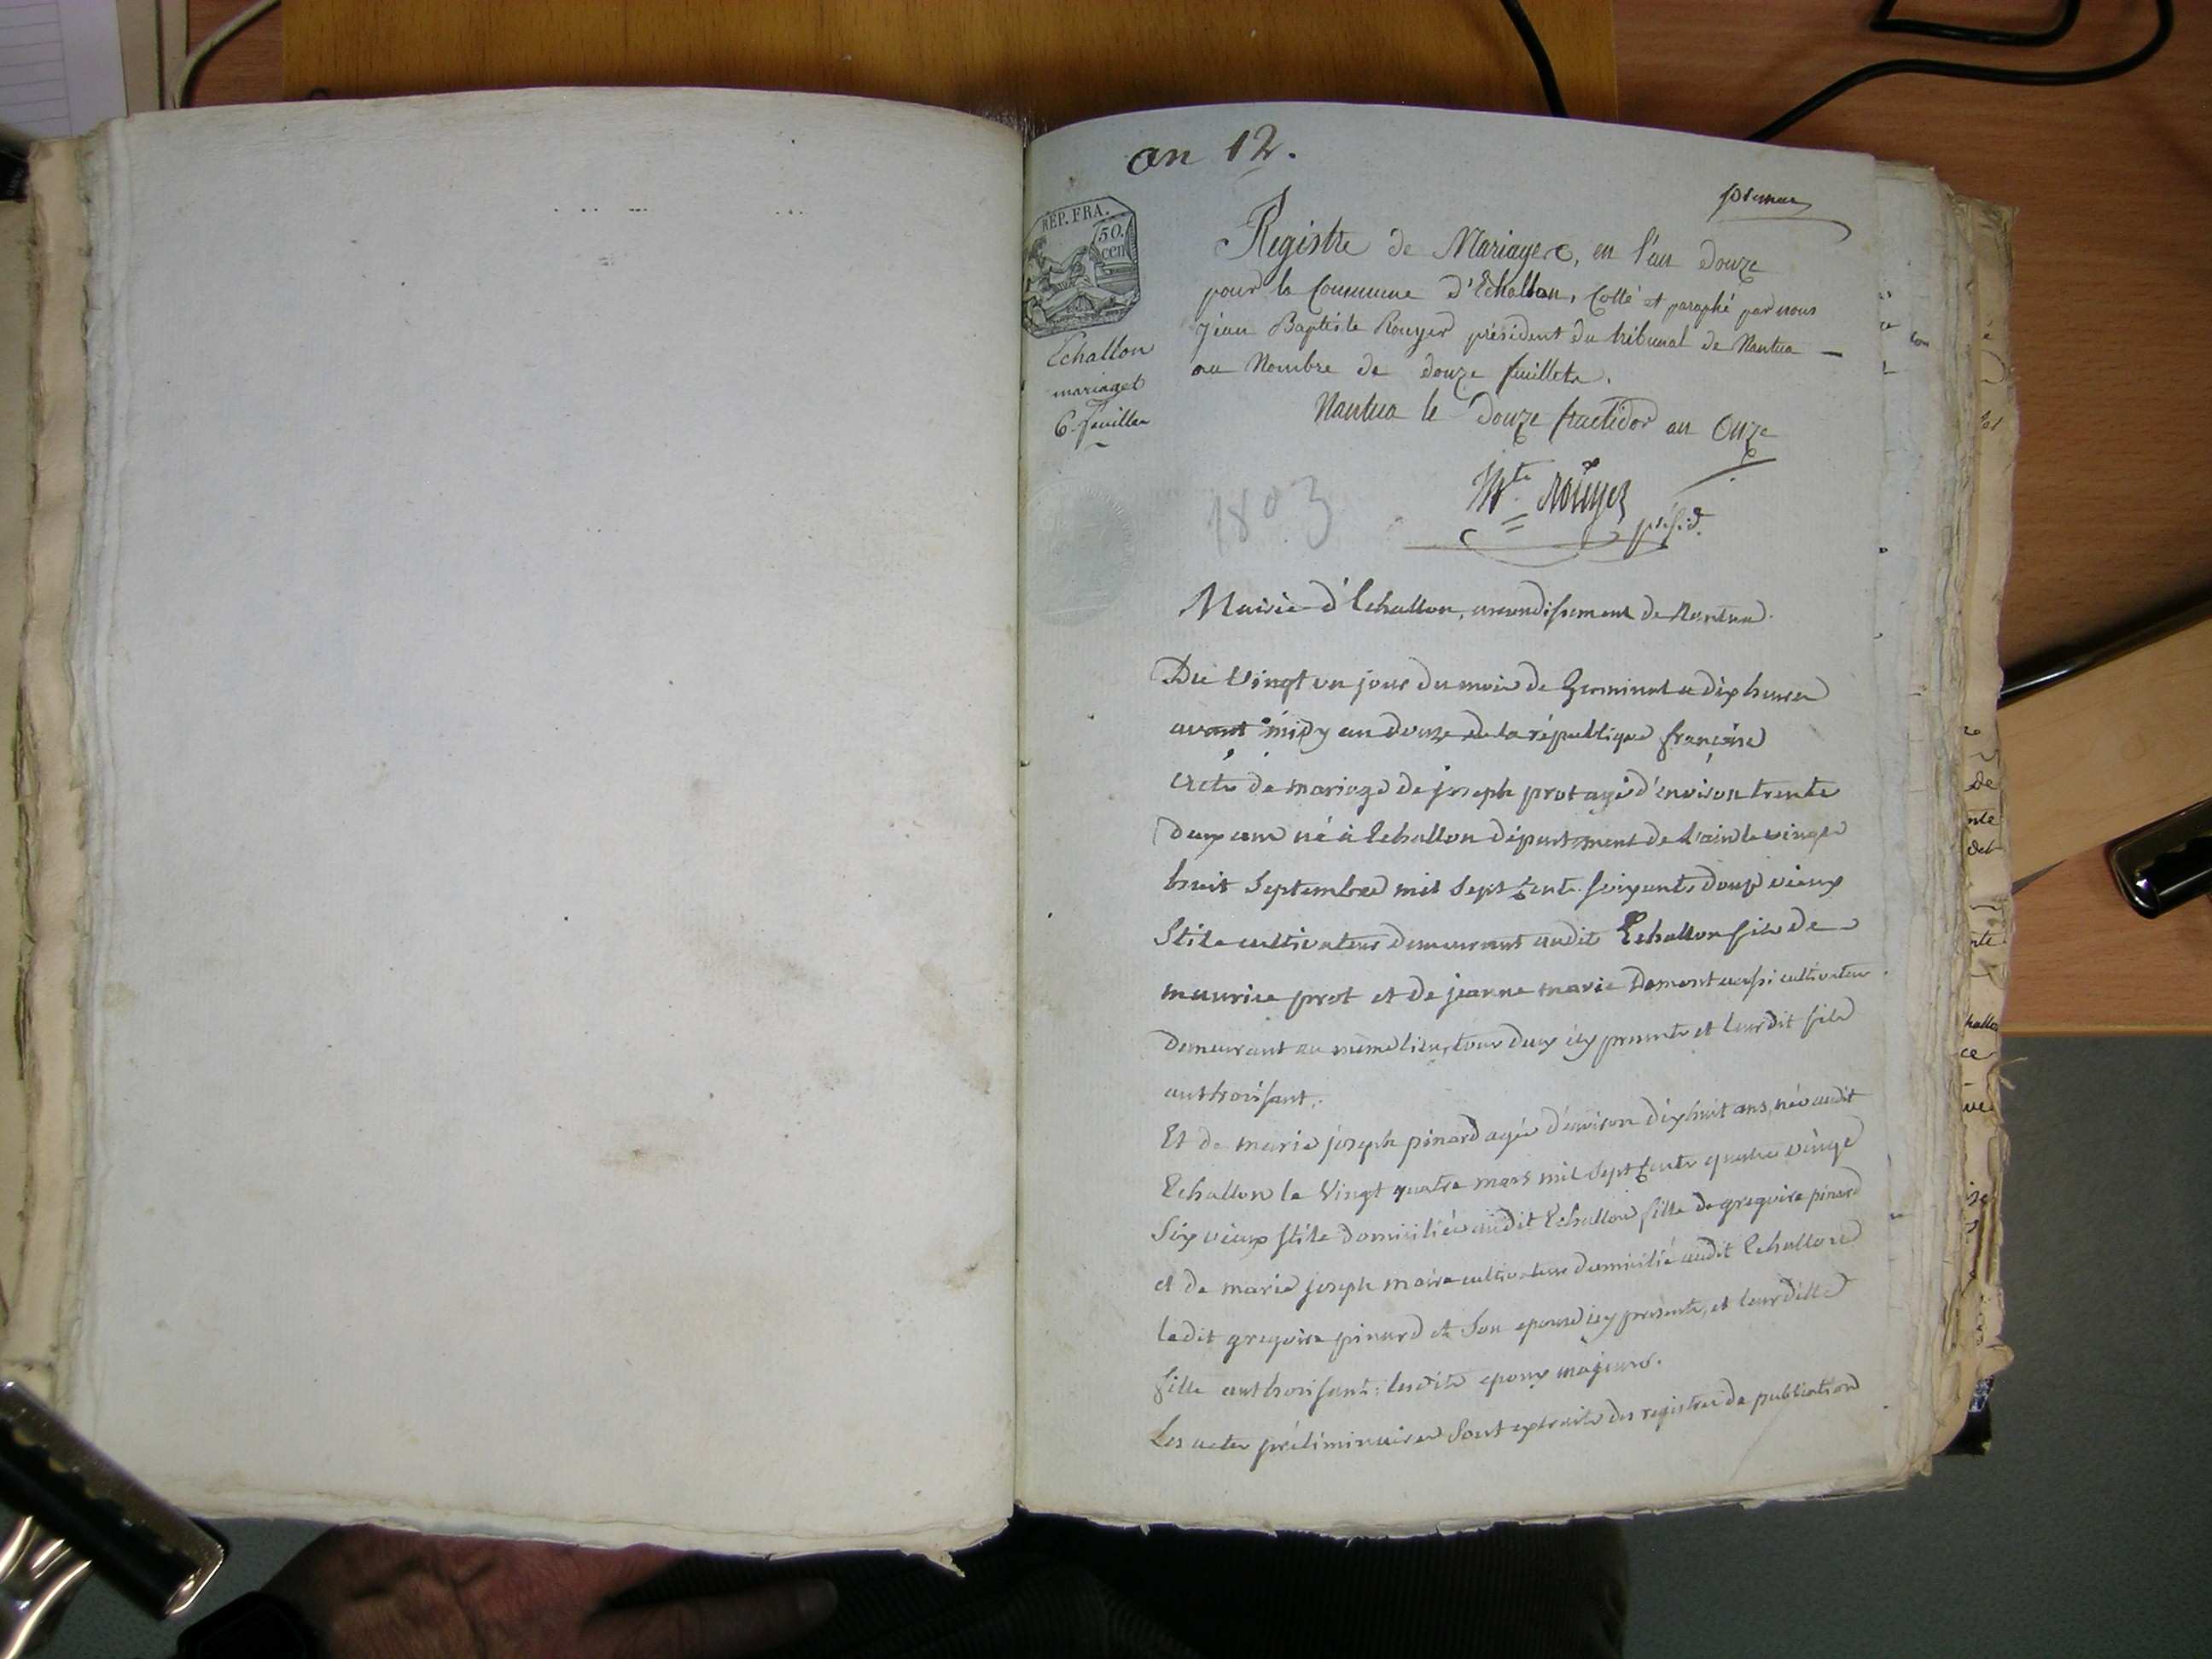 an 12.
premier
REP. FRA.
50.
cen
Echallon
mariages
6. feuilles
Registre de Mariages, en l'an douze
pour la Commune d'Echallon, Cotté et paraphé par nous
Jean Baptiste Rouyer président du tribunal de Nantua —
au Nombre de douze feuillets.
Nantua le Douze fructidor an Onze
Rouyer
présid.
1803
Mairie d'Echallon, arrondissement de Nantua.
Du Vingt un jour du mois de Germinal a dix heures
avant midy an douze de la république françaisé
Acte de mariage de joseph prot agé d'environ trente
deux ans né à Echallon département de l'ain le vingt
huit Septembre mil Sept Cents soixante douze vieux
Stile cultivateur demeurant audit Echallon fils de
maurice prot et de jeanne marie Domont aussi cultivateur
demeurant au même lieu, tous deux icy presents et leur dit fils
authorisant.
Et de marie joseph pinard agée d'environ dixhuit ans, née audit
Echallon le Vingt quatre mars mil Sept Cents quatre vingt
Six vieux Stile domiciliée audit Echallon fille de gregoire pinard
et de marie joseph maire cultivateur domicilié audit Echallon
ledit gregoire pinard et Son epouse icy presents, et leur ditte
fille authorisant: lesdits epoux majeurs.
Les actes préliminaires Sont extraits des registres de publication